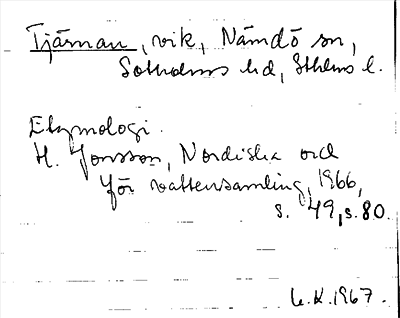 Tjärnan, vik, Nämdö sn,
Sotholms hd, Sthlms l.
Etymologi.
H. Jonsson, Nordiska ord
för vattensamling, 1966,
s. 49, s. 80.
U.K. 1967.